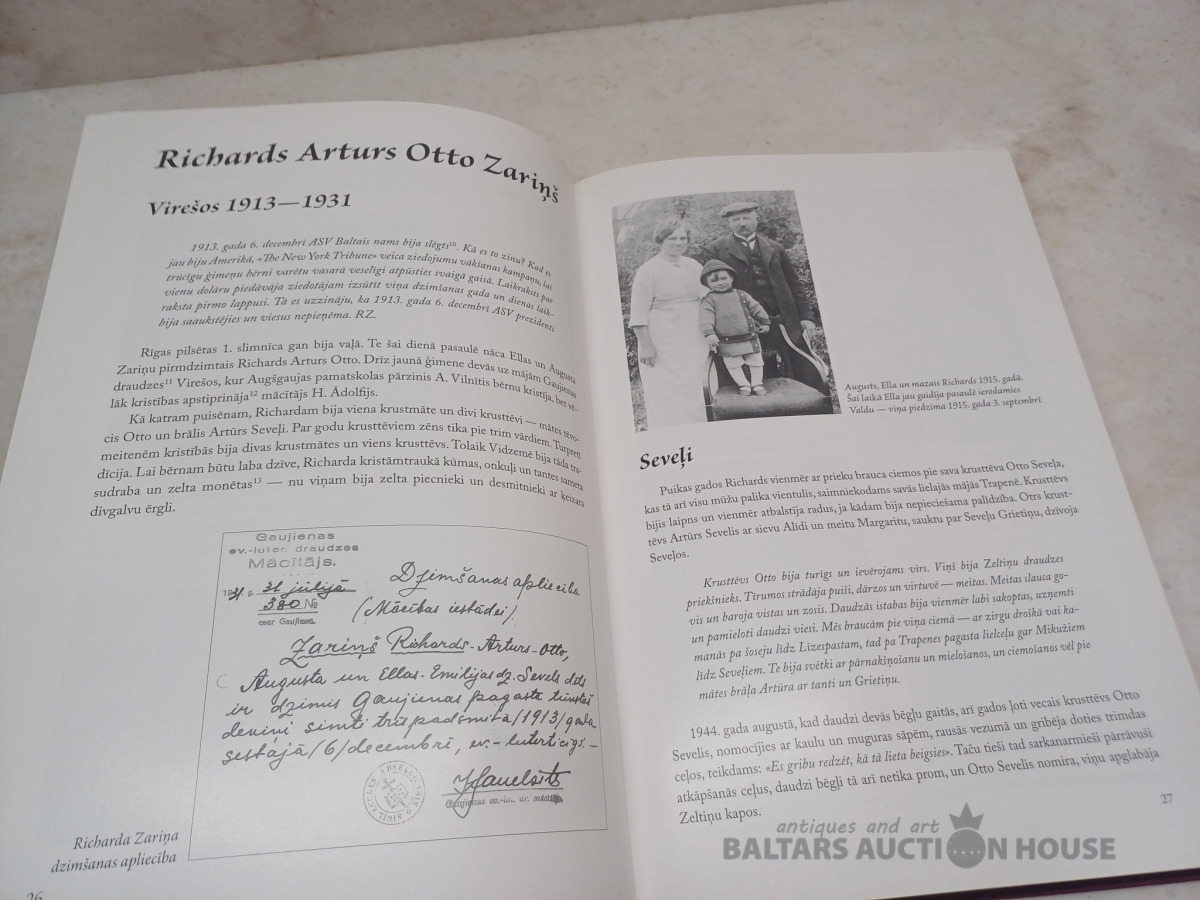 Richards Arturs Otto Zariņš
Virešos 1913—1931
1913. gada 6. decembrī ASV Baltais nams bija slēgts¹⁰. Kā es to zinu? Kad es
jau biju Amerikā, «The New York Tribune» veica ziedojumu vākšanas kampaņu, lai
trūcīgu ģimeņu bērni varētu vasarā veselīgi atpūsties svaigā gaisā. Laikraksts par
vienu dolāru piedāvāja ziedotājam izsūtīt viņa dzimšanas gada un dienas laik-
raksta pirmo lappusi. Tā es uzzināju, ka 1913. gada 6. decembrī ASV prezidents
bija saaukstējies un viesus nepieņēma. RZ.
Rīgas pilsētas 1. slimnīca gan bija vaļā. Te šai dienā pasaulē nāca Ellas un Augusta
Zariņu pirmdzimtais Richards Arturs Otto. Drīz jaunā ģimene devās uz mājām Gaujienas
draudzes¹¹ Virešos, kur Augšgaujas pamatskolas pārzinis A. Vilnītis bērnu kristīja, bet vē-
lāk kristības apstiprināja¹² mācītājs H. Ādolfijs.
Kā katram puisēnam, Richardam bija viena krustmāte un divi krusttēvi — mātes tēvo-
cis Otto un brālis Artūrs Seveļi. Par godu krusttēviem zēns tika pie trim vārdiem. Turpretī
meitenēm kristībās bija divas krustmātes un viens krusttēvs. Tolaik Vidzemē bija tāda tra-
dīcija. Lai bērnam būtu laba dzīve, Richarda kristāmtraukā kūmas, onkuļi un tantes sameta
sudraba un zelta monētas¹³ — nu viņam bija zelta piecnieki un desmitnieki ar ķeizara
divgalvu ērgli.
Gaujienas
ev.-luter. draudzes
Mācītājs.
1931 g. 31 jūlijā
380 №
caur Gaujienu.
Dzimšanas apliecība
(Mācības iestādei).
Zariņš Richards-Arturs-Otto,
Augusta un Ellas-Emilijas dz. Sevels dēls
ir dzimis Gaujienas pagastā tūkstoš
deviņi simti trīspadsmitā /1913/ gada
sestajā /6/ decembrī, ev.-luterticīgs. —
Gaujienas ev.-lut. dr. mācītājs
Richarda Zariņa
dzimšanas apliecība
26
Augusts, Ella un mazais Richards 1915. gadā.
Šai laikā Ella jau gaidīja pasaulē ierodamies
Valdu — viņa piedzima 1915. gada 3. septembrī
Seveļi
Puikas gados Richards vienmēr ar prieku brauca ciemos pie sava krusttēva Otto Seveļa,
kas tā arī visu mūžu palika vientulis, saimniekodams savās lielajās mājās Trapenē. Krusttēvs
bijis laipns un vienmēr atbalstīja radus, ja kādam bija nepieciešama palīdzība. Otrs krust-
tēvs Artūrs Sevelis ar sievu Alīdi un meitu Margaritu, sauktu par Seveļu Grietiņu, dzīvoja
Seveļos.
Krusttēvs Otto bija turīgs un ievērojams vīrs. Viņš bija Zeltiņu draudzes
priekšnieks. Tīrumos strādāja puiši, dārzos un virtuvē — meitas. Meitas slauca go-
vis un baroja vistas un zosis. Daudzās istabas bija vienmēr labi sakoptas, uzņemti
un pamieloti daudzi viesi. Mēs braucām pie viņa ciemā — ar zirgu droškā vai ka-
manās pa šoseju līdz Lizespastam, tad pa Trapenes pagasta lielceļu gar Mikužiem
līdz Seveļiem. Te bija svētki ar pārnakšņošanu un mielošanos, un ciemošanos vēl pie
mātes brāļa Artūra ar tanti un Grietiņu.
1944. gada augustā, kad daudzi devās bēgļu gaitās, arī gados ļoti vecais krusttēvs Otto
Sevelis, nomocījies ar kaulu un muguras sāpēm, rausās vezumā un gribēja doties trimdas
ceļos, teikdams: «Es gribu redzēt, kā tā lieta beigsies». Taču tieši tad sarkanarmieši pārrāvuši
atkāpšanās ceļus, daudzi bēgļi tā arī netika prom, un Otto Sevelis nomira, viņu apglabāja
Zeltiņu kapos.
27
antiques and art
BALTARS AUCTION HOUSE